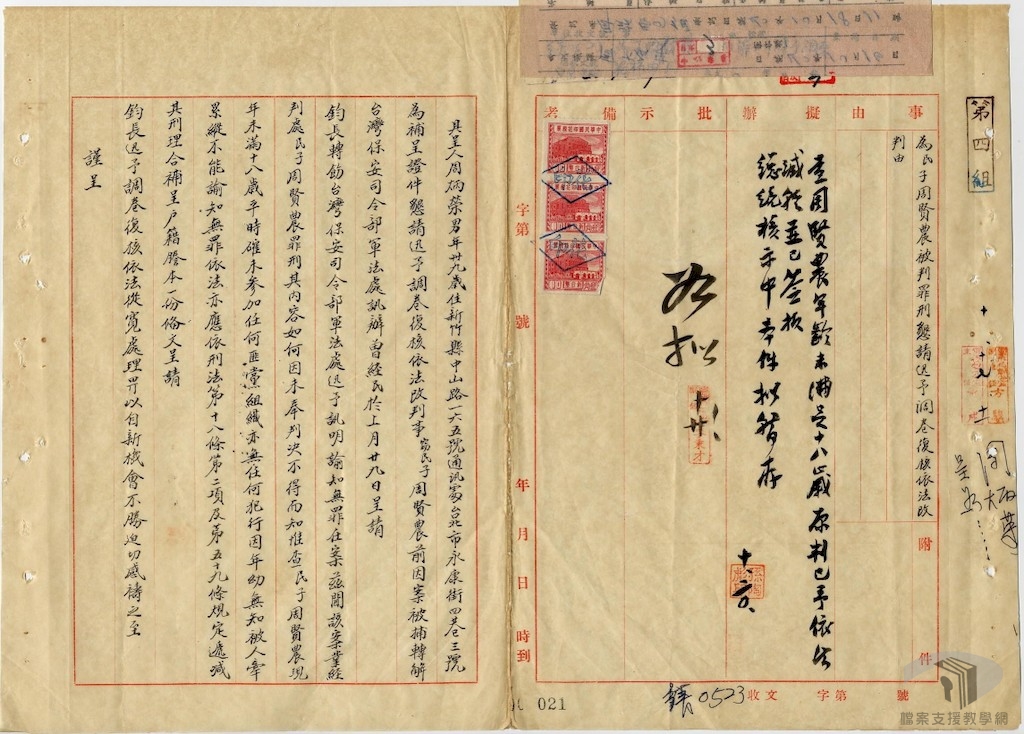 第四組
事由擬辦批示備考
為民子周賢農被判罪刑懇請迅予調卷復核依法改
判由
附件
查周賢農年齡未滿足十八歲原判已予依法
減輕並已簽核
總統核示中本件擬暫存
十、
如擬
十
收文字第號
0523
字第號
年月日時到
具呈人周炳榮男年卅九歲住新竹縣中山路一六五號通訊處台北市永康街四巷三號
為補呈證件懇請迅予調卷復核依法改判事竊民子周賢農前因案被捕轉解
台灣保安司令部軍法處訊辦曾經民於上月廿九日呈請
鈞長轉飭台灣保安司令部軍法處迅予訊明諭知無罪在案茲聞該案業經
判處民子周賢農罪刑其內容如何因未奉判決不得而知惟查民子周賢農現
年未滿十八歲平時確未參加任何匪黨組織亦無任何犯行因年幼無知被人牽
累縱不能諭知無罪依法亦應依刑法第十八條第二項及第五十九條規定遞減
其刑理合補呈戶籍謄本一份備文呈請
鈞長迅予調卷復核依法從寬處理畀以自新機會不勝迫切感禱之至
謹呈
021
檔案支援教學網